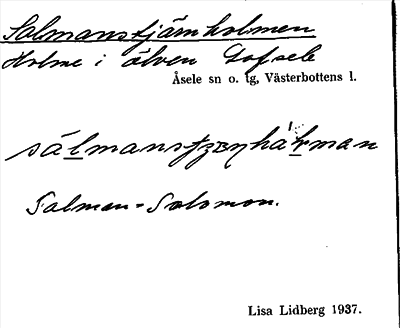 Salmanstjärnholmen
Holme i älven Gafsele
Åsele sn o. tg, Västerbottens l.
Salman = Salomon.
Lisa Lidberg 1937.